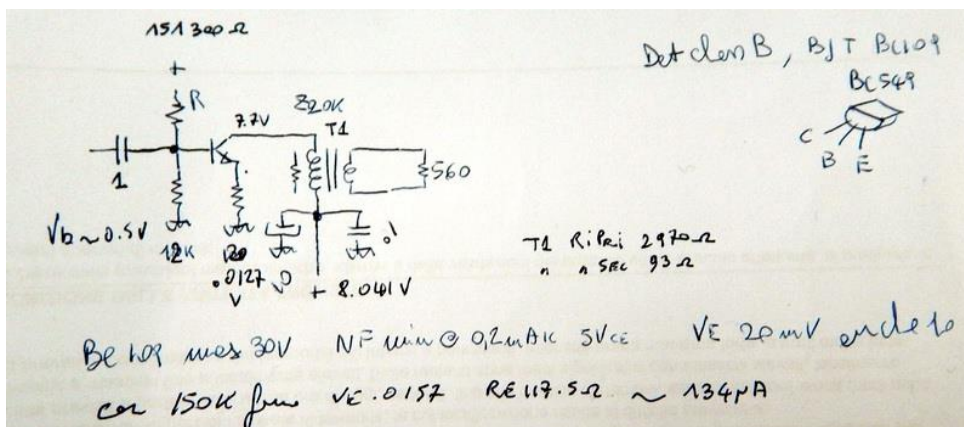 151300Ω
+
R
7.7V
820K
T1
1
560
Vb ~ 0.5V
12K
.1
.0127
V
+ 8.041V
Det class B, BJT BC109
BC549
C
B
E
T1 RiPRi 2970Ω
" " SEC 93Ω
BC109 max 30V NF min @ 0,2mA IK 5VCE VE 20mV
con 150K VE .0157 RE 117.5Ω ~ 134μA